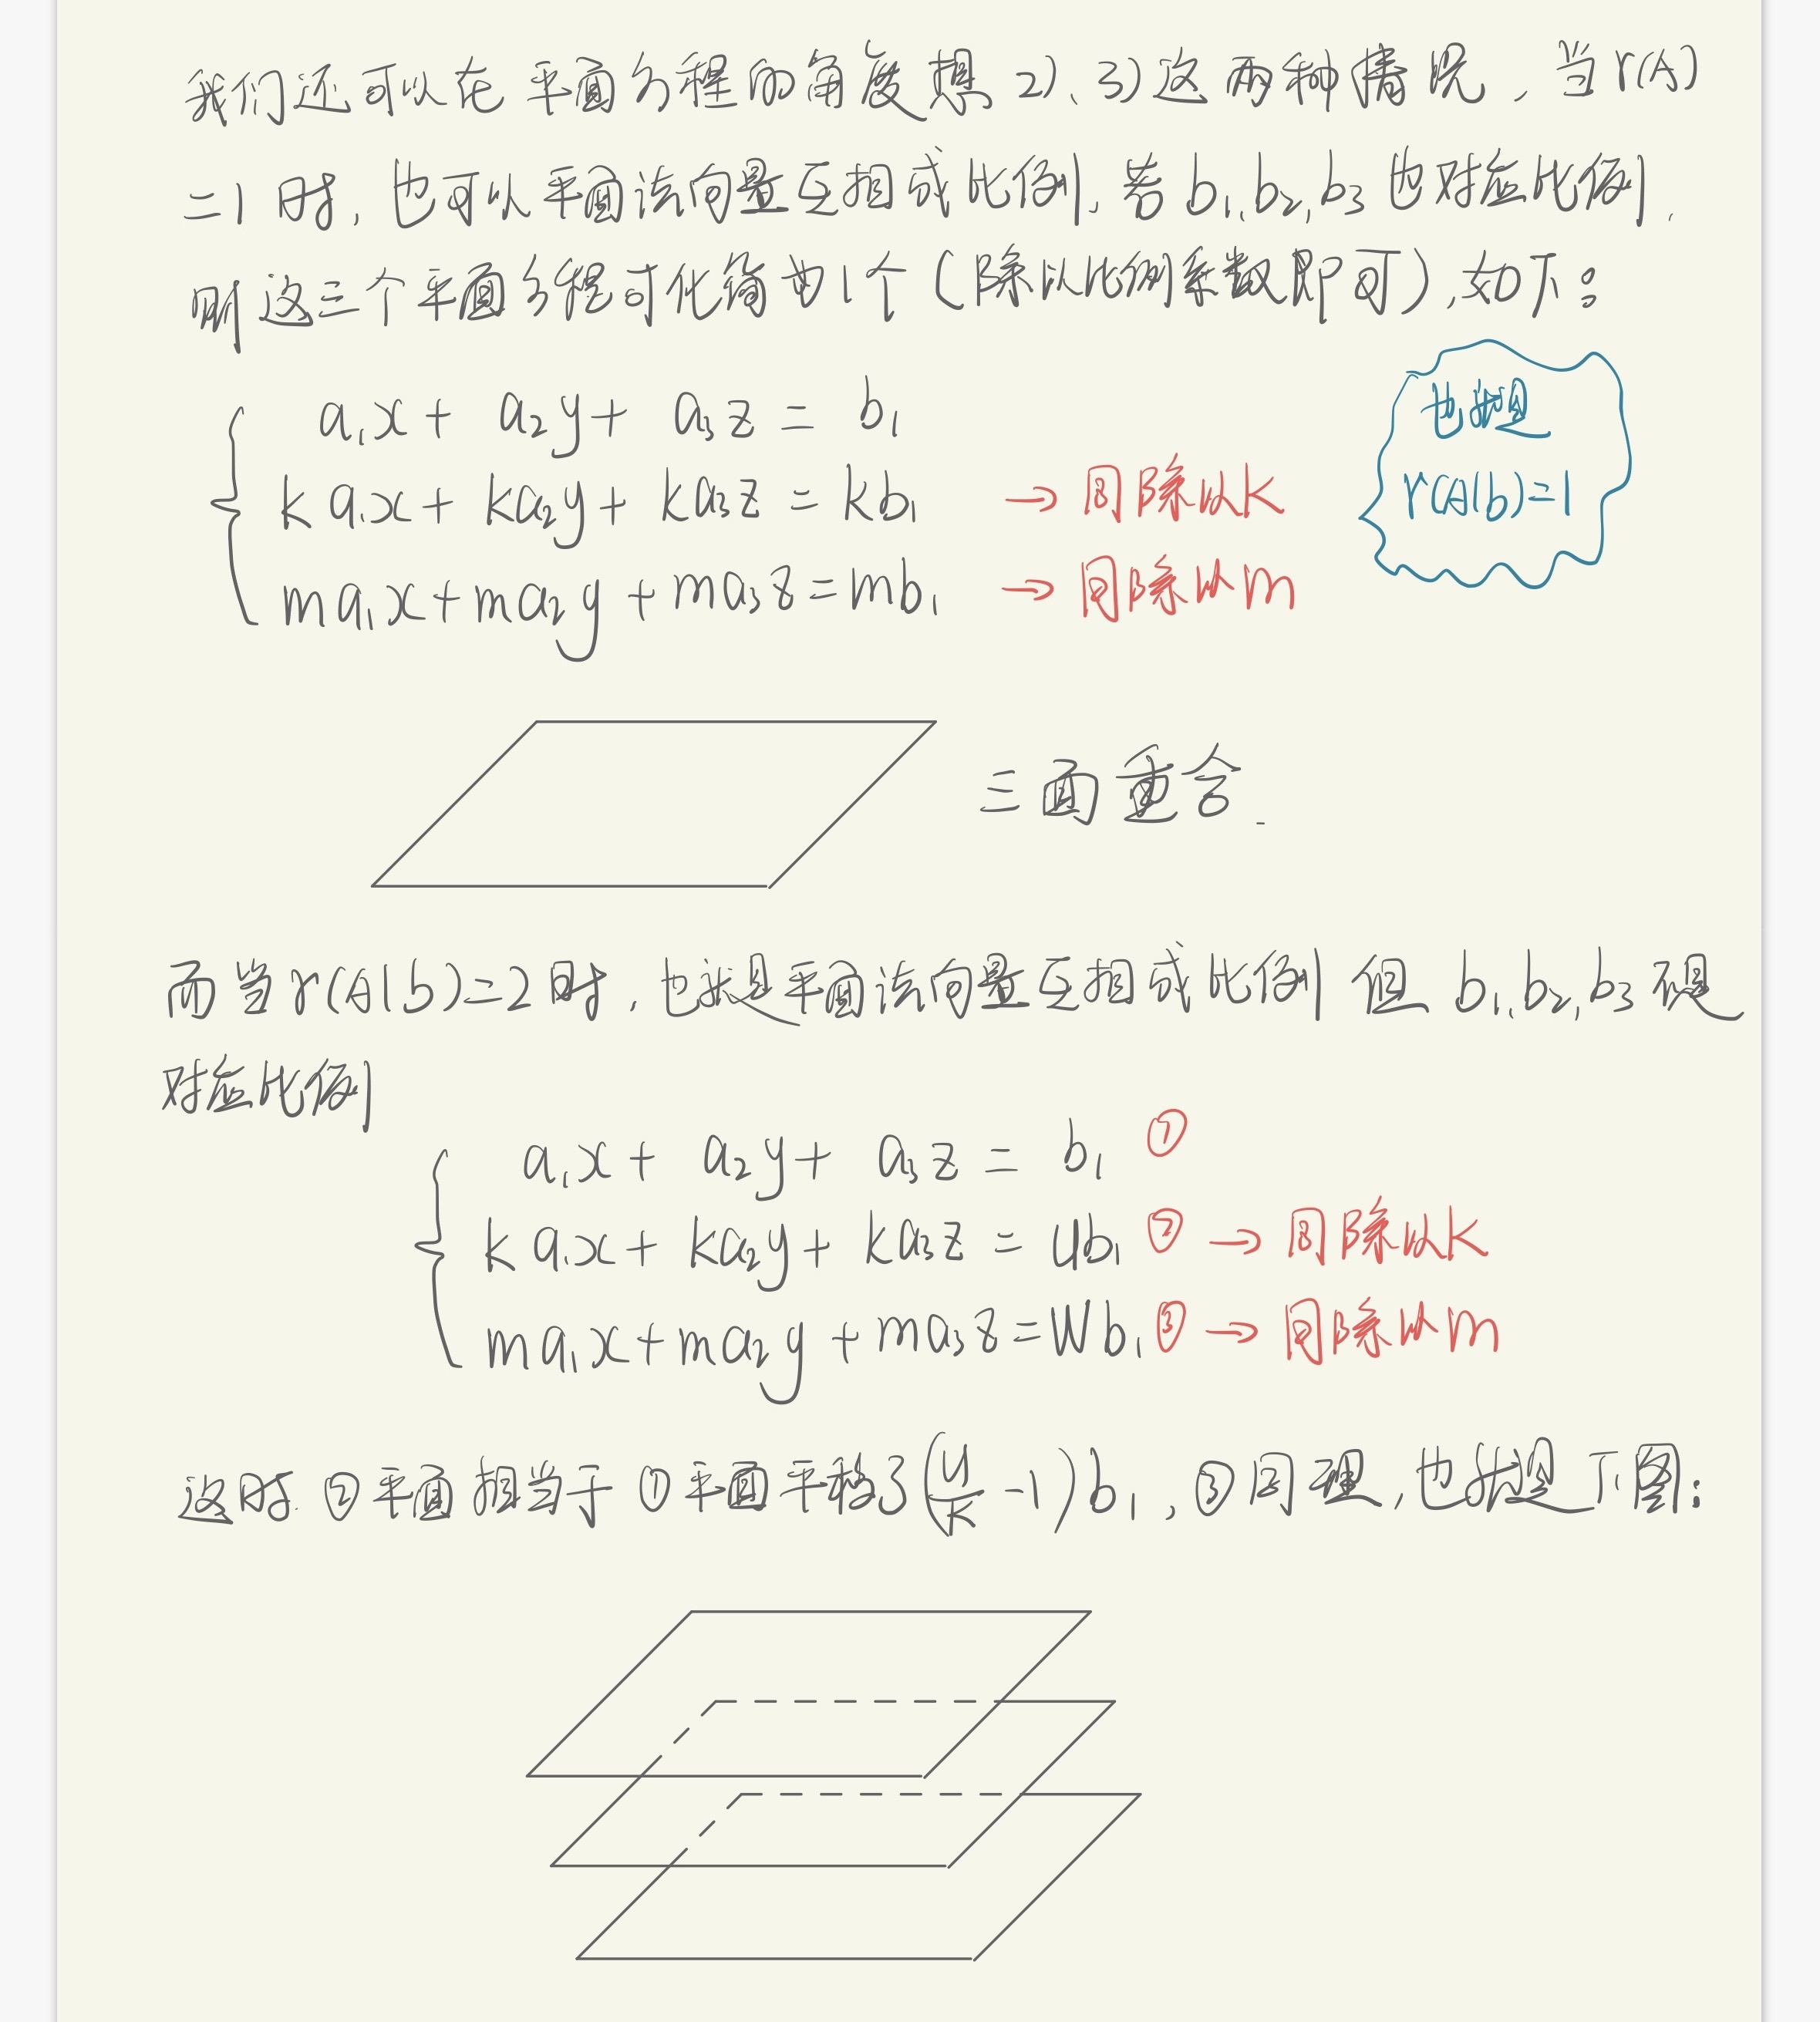 我们还可以在平面方程的角度想 2)、3)这两种情况，当r(A)
=1时，也可以平面法向量互相成比例，若b₁,b₂,b₃也对应比例，
则这三个平面方程可化简为1个（除以比例系数即可），如下：
也就是
r(A|b)=1
a₁x + a₂y + a₃z = b₁
ka₁x + ka₂y + ka₃z = kb₁ → 同除以k
ma₁x + ma₂y + ma₃z = mb₁ → 同除以m
三面重合.
而当r(A|b)=2时，也就是平面法向量互相成比例 但 b₁,b₂,b₃不是
对应比例
a₁x + a₂y + a₃z = b₁ ①
ka₁x + ka₂y + ka₃z = ub₁ ② → 同除以k
ma₁x + ma₂y + ma₃z = wb₁ ③ → 同除以m
这时.②平面相当于①平面平移了(u/k -1)b₁，③同理，也就是下图：